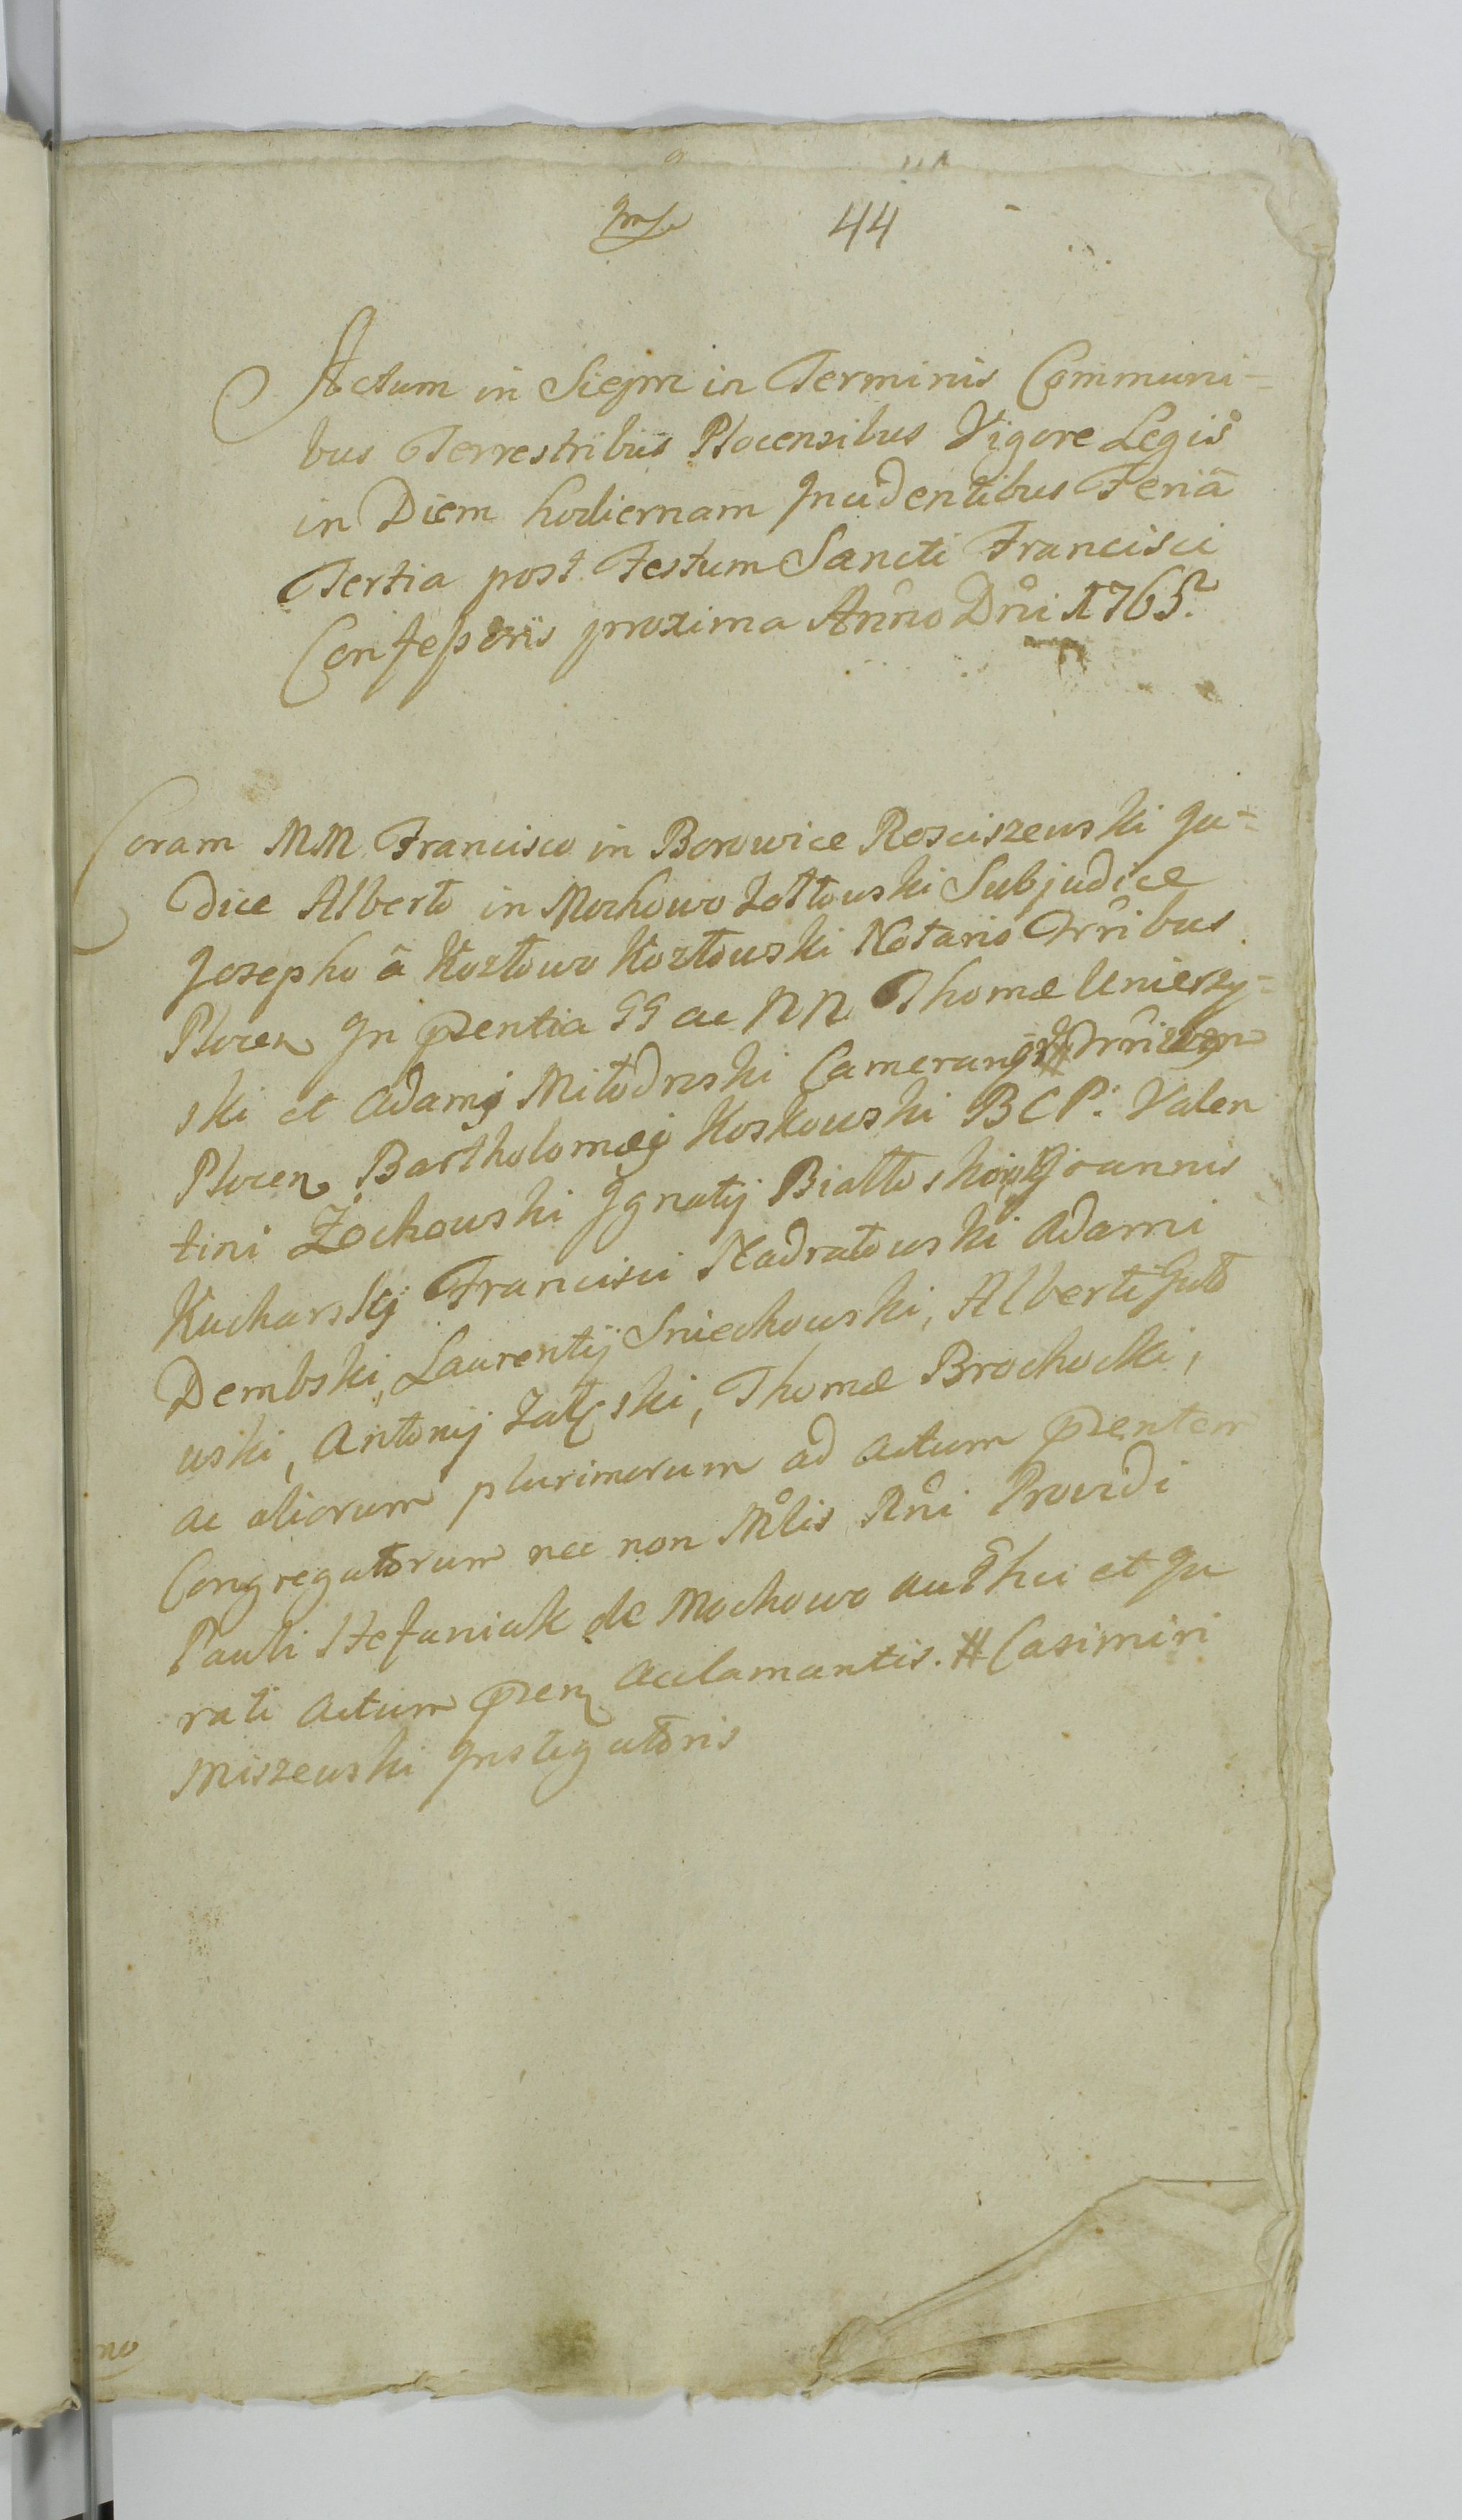 44
Actum in Siepm in Terminis Communi=
bus Terrestribus Plocensibus Vigore Legis
in Diem hodiernam Incidentibus Feriâ
Tertia post Festum Sancti Francisci
Confeßoris proxima Anno Dni 1765.
Coram MM Francisco in Borowice Rosciszewski Ju=
dice Alberto in Mochowo Zołtowski Subjudice
Josepho â Kozłowo Kozłowski Notario Trribus
Plocen In pzentia GG ac NN Thomæ Unierzy=
ski et Adamj Miłodroski Camerarior #
Plocen Bartholomæj Koskowski BCP. Valen
tini Żochowski Ignatij Białłoskorski Joannis
Kucharskj Francisci Nadratowski Adami
Dembski, Laurentij Sniechowski, Alberti Guto
wski, Antonij Załęski, Thomæ Brochocki,
ac aliorum plurimorum ad actum pzentem
Congregatorum nec non Mlis Rni Providi
Pauli Stefaniak de Mochowo authci et Ju
rati actum pzen acclamantis. # Casimiri
Miszewski Instigatoris
no